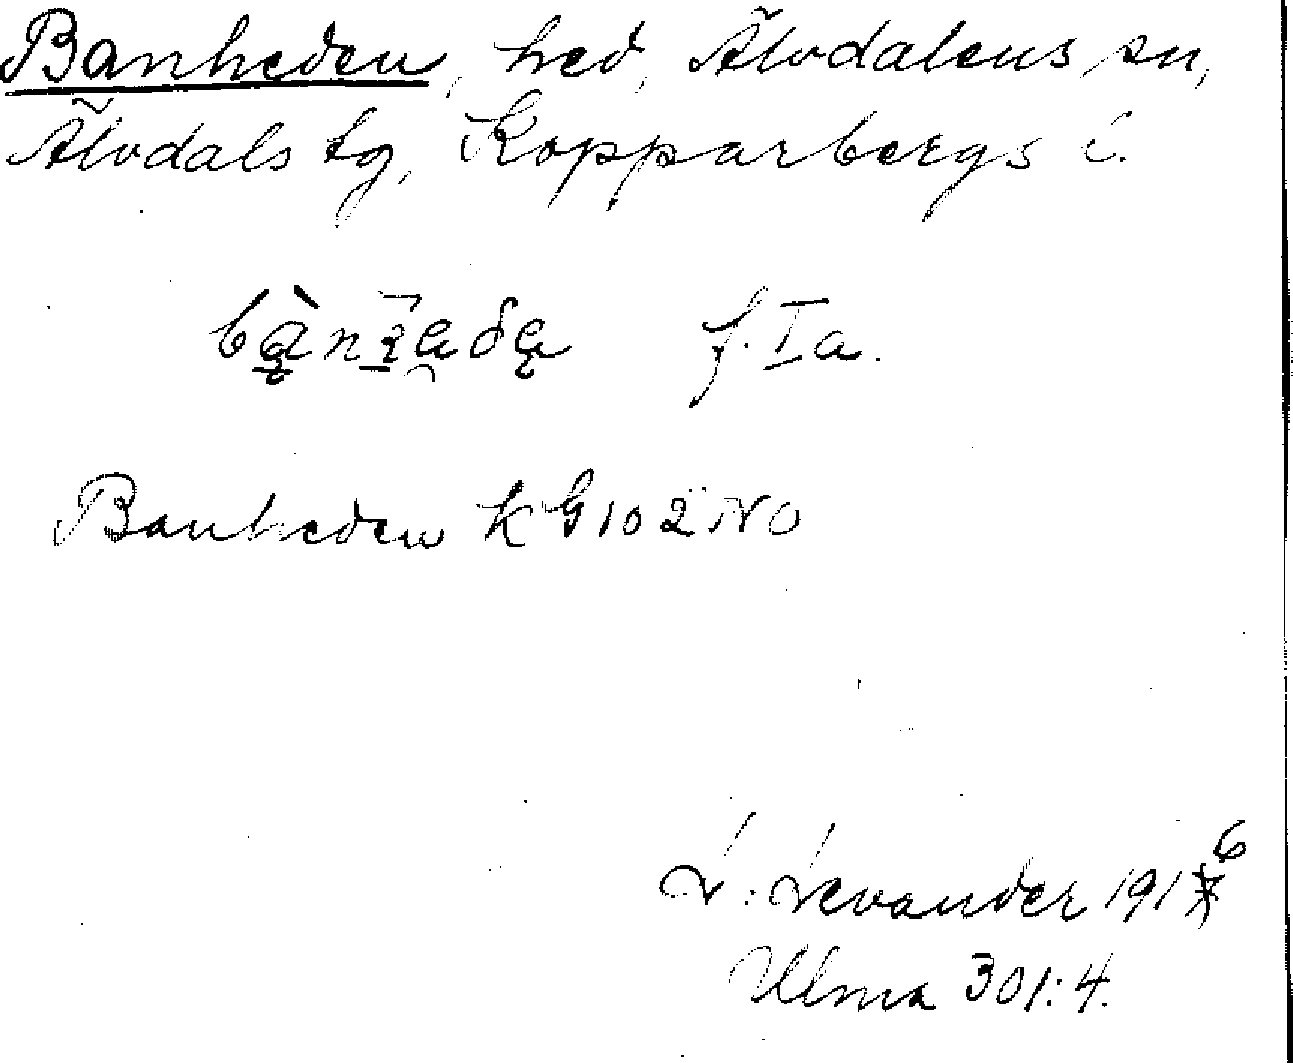 Banheden, hed, Älvdalens sn,
Älvdals tg, Kopparbergs l.
f. Ia.
Banheden K G 102 NO
L. Levander 1916
Ulma 301:4.